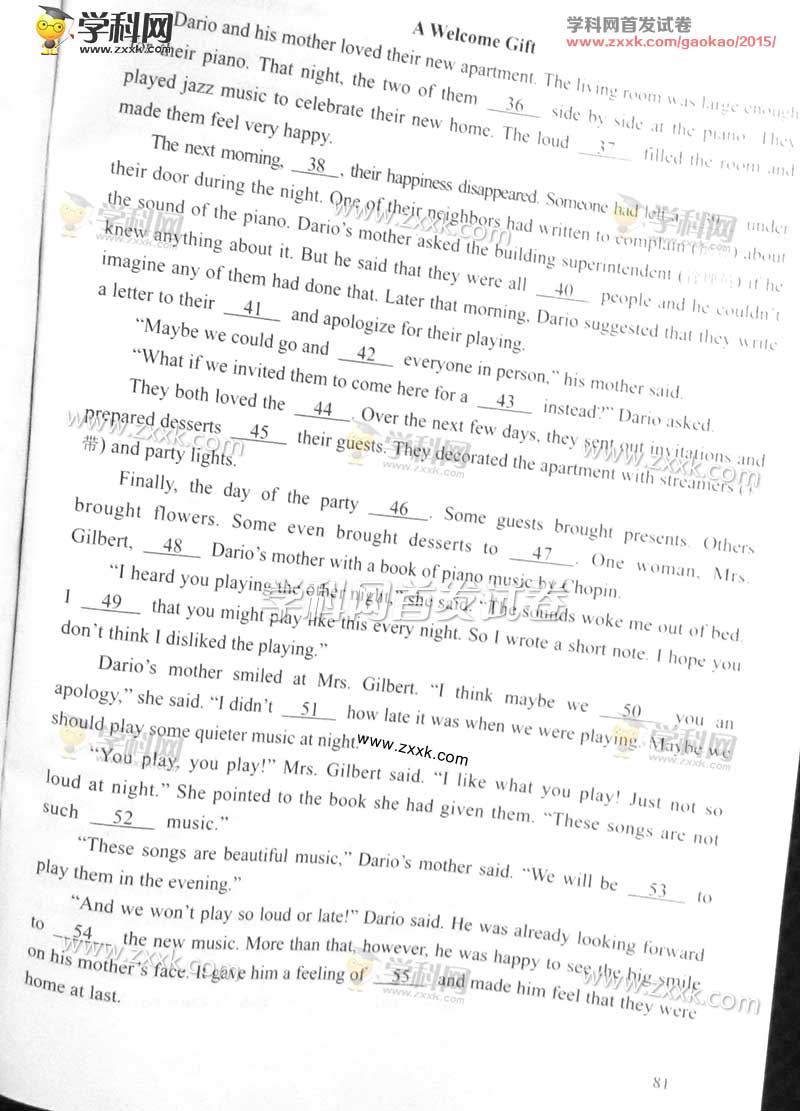 学科网
www.zxxk.com
学科网首发试卷
www.zxxk.com/gaokao/2015/
A Welcome Gift
Dario and his mother loved their new apartment. The living room was large enough
their piano. That night, the two of them 36 side by side at the piano. They
played jazz music to celebrate their new home. The loud 37 filled the room and
made them feel very happy.
The next morning, 38, their happiness disappeared. Someone had left a under
their door during the night. One of their neighbors had written to complain ( ) about
the sound of the piano. Dario's mother asked the building superintendent ( ) if he
knew anything about it. But he said that they were all 40 people and he couldn't
imagine any of them had done that. Later that morning, Dario suggested that they write
a letter to their 41 and apologize for their playing.
"Maybe we could go and 42 everyone in person," his mother said.
"What if we invited them to come here for a 43 instead?" Dario asked.
They both loved the 44. Over the next few days, they sent out invitations and
prepared desserts 45 their guests. They decorated the apartment with streamers (
带) and party lights.
Finally, the day of the party 46. Some guests brought presents. Others
brought flowers. Some even brought desserts to 47. One woman, Mrs.
Gilbert, 48 Dario's mother with a book of piano music by Chopin.
"I heard you playing the other night," she said. "The sounds woke me out of bed.
I 49 that you might play like this every night. So I wrote a short note. I hope you
don't think I disliked the playing."
Dario's mother smiled at Mrs. Gilbert. "I think maybe we 50 you an
apology," she said. "I didn't 51 how late it was when we were playing. Maybe we
should play some quieter music at night."
"You play, you play!" Mrs. Gilbert said. "I like what you play! Just not so
loud at night." She pointed to the book she had given them. "These songs are not
such 52 music."
"These songs are beautiful music," Dario's mother said. "We will be 53 to
play them in the evening."
"And we won't play so loud or late!" Dario said. He was already looking forward
to 54 the new music. More than that, however, he was happy to see the big smile
on his mother's face. It gave him a feeling of 55 and made him feel that they were
home at last.
81